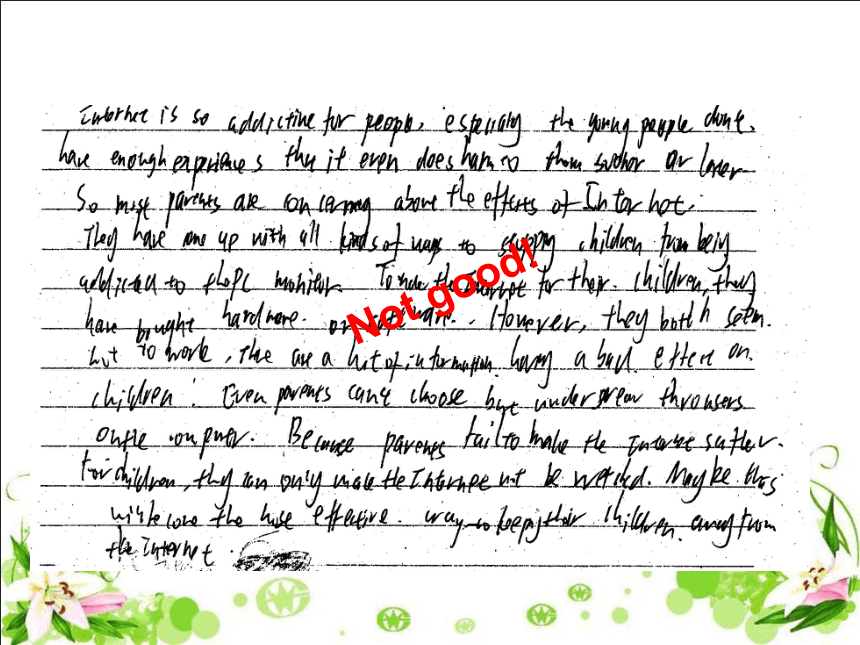 Internet is so addictive for people, especially the young people don't
have enough experiences that it even does harm to them sooner or later
So most parents are concerning about the effects of Internet.
They have come up with all kinds of ways to stopping children from being
addicted to the PC monitor. To make the Internet for their children, they
have bought hardware. or software. However, they both seem
not to work, There are a lot of information having a bad effect on
children. Even parents can't choose but underwear trousers
on the computer. Because parents fail to make the Internet safer
for children, they can only make the Internet not be watched. Maybe this
will become the most effective way to keep their children away from
the Internet.
Not good!